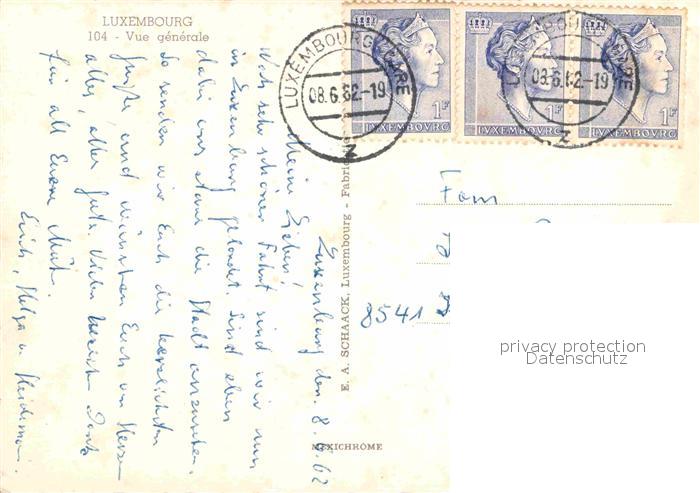 LUXEMBOURG
104 - Vue générale
LUXEMBOURG GARE
08.6.62-19
2
LUXEMBOURG GARE
08.6.62-19
2
1F
LUXEMBOURG
1F
LUXEMBOURG
1F
LUXEMBOURG
Luxemburg den 8.6.62
Meine Lieben!
Nach sehr schöner Fahrt sind wir nun
in Luxemburg gelandet. Sind eben
dabei uns etwas die Stadt anzusehen.
So senden wir Euch die herzlichsten
Grüße, und wünschen Euch von Herzen
alles, alles Gute. Vielen herzlich Dank
für all Eure Müh.
Erich, Helga u. Heidemarie.
E. A. SCHAACK, Luxembourg - Fabric
MEXICHROME
Fam
8541
privacy protection
Datenschutz